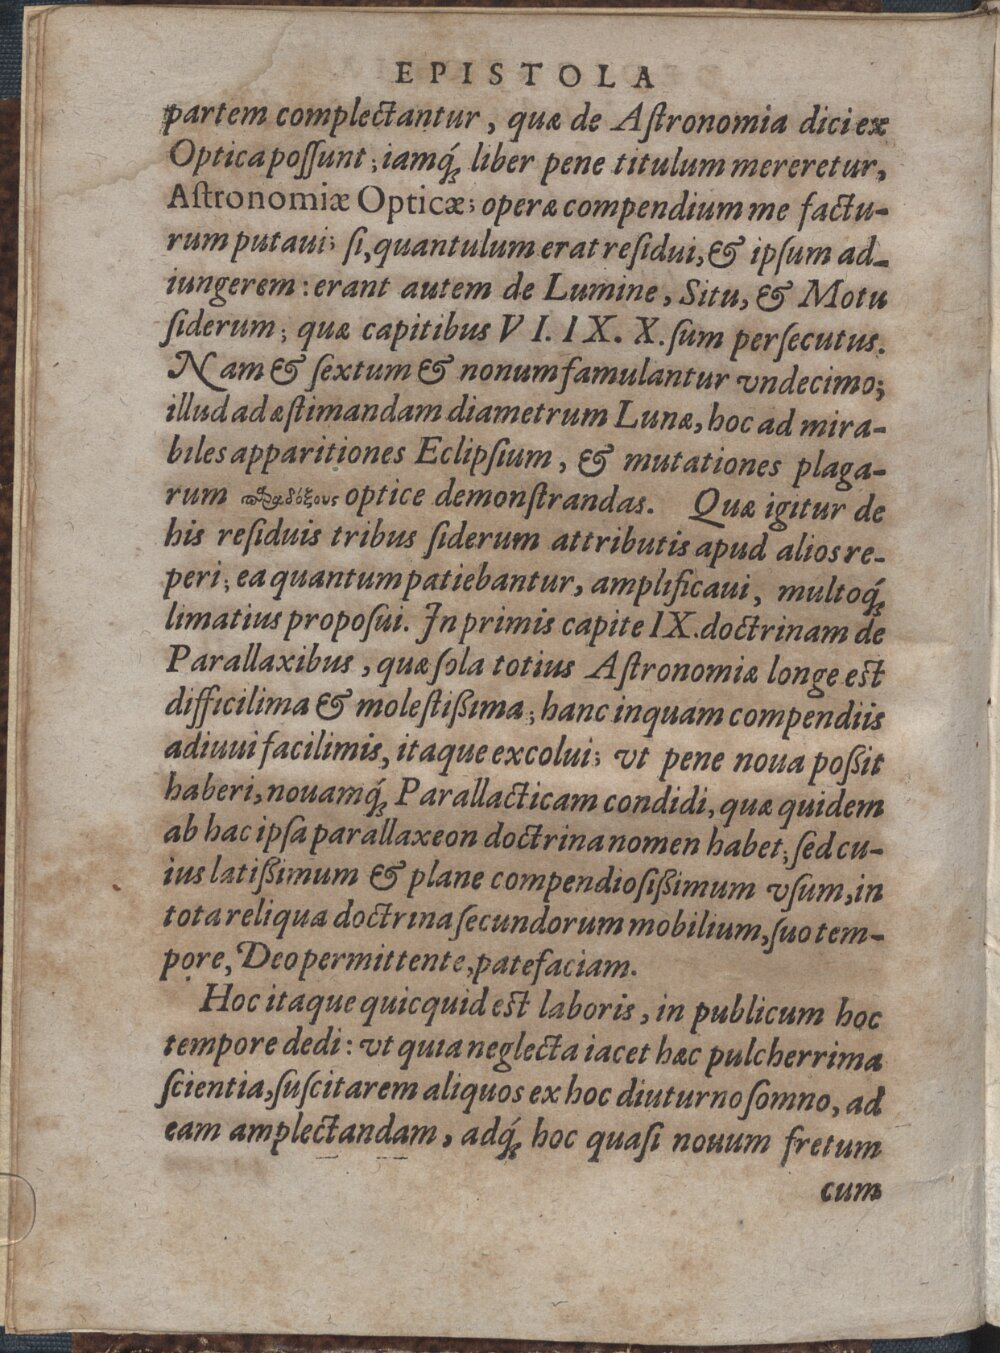 EPISTOLA
partem complectantur, quæ de Aſtronomia dici ex
Optica poſſunt; iamq́ꝫ liber pene titulum mereretur,
Aſtronomiæ Opticæ; operæ compendium me factu-
rum putaui; ſi, quantulum erat reſidui, & ipſum ad-
iungerem: erant autem de Lumine, Situ, & Motu
ſiderum; quæ capitibus VI. IX. X. ſum perſecutus.
Nam & ſextum & nonum famulantur vndecimo;
illud ad æſtimandam diametrum Lunæ, hoc ad mira-
biles apparitiones Eclipſium, & mutationes plaga-
rum παραδόξους optice demonſtrandas. Quæ igitur de
his reſiduis tribus ſiderum attributis apud alios re-
peri; ea quantum patiebantur, amplificaui, multoq́ꝫ
limatius propoſui. In primis capite IX. doctrinam de
Parallaxibus, quæ ſola totius Aſtronomiæ longe est
difficilima & moleſtißima; hanc inquam compendiis
adiuui facilimis, itaque excolui; vt pene noua poßit
haberi, nouamq́ꝫ Parallacticam condidi, quæ quidem
ab hac ipſa parallaxeon doctrina nomen habet; ſed cu-
ius latißimum & plane compendioſißimum vſum, in
tota reliqua doctrina ſecundorum mobilium, ſuo tem-
pore, Deo permittente, patefaciam.
Hoc itaque quicquid est laboris, in publicum hoc
tempore dedi: vt quia neglecta iacet hæc pulcherrima
ſcientia, ſuſcitarem aliquos ex hoc diuturno ſomno, ad
eam amplectandam, adq́ꝫ hoc quaſi nouum fretum
cum